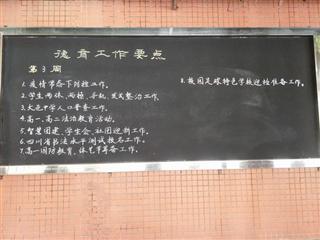 德育工作要点
第3周
1.疫情常态下防控工作。
2.学生两操、两检、手机、发式整治工作。
3.大邑中学人口普查工作。
4.高一、高二法治教育活动。
5.智慧团建、学生会、社团迎新工作。
6.四川省书法水平测试报名工作。
7.高一国防教育、体艺节筹备工作。
8.校园足球特色学校迎检准备工作。